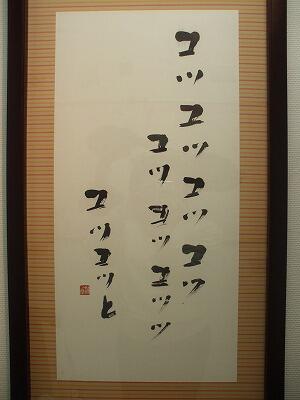 コツコツコツコツ
コツコツコツツ
コツコツと